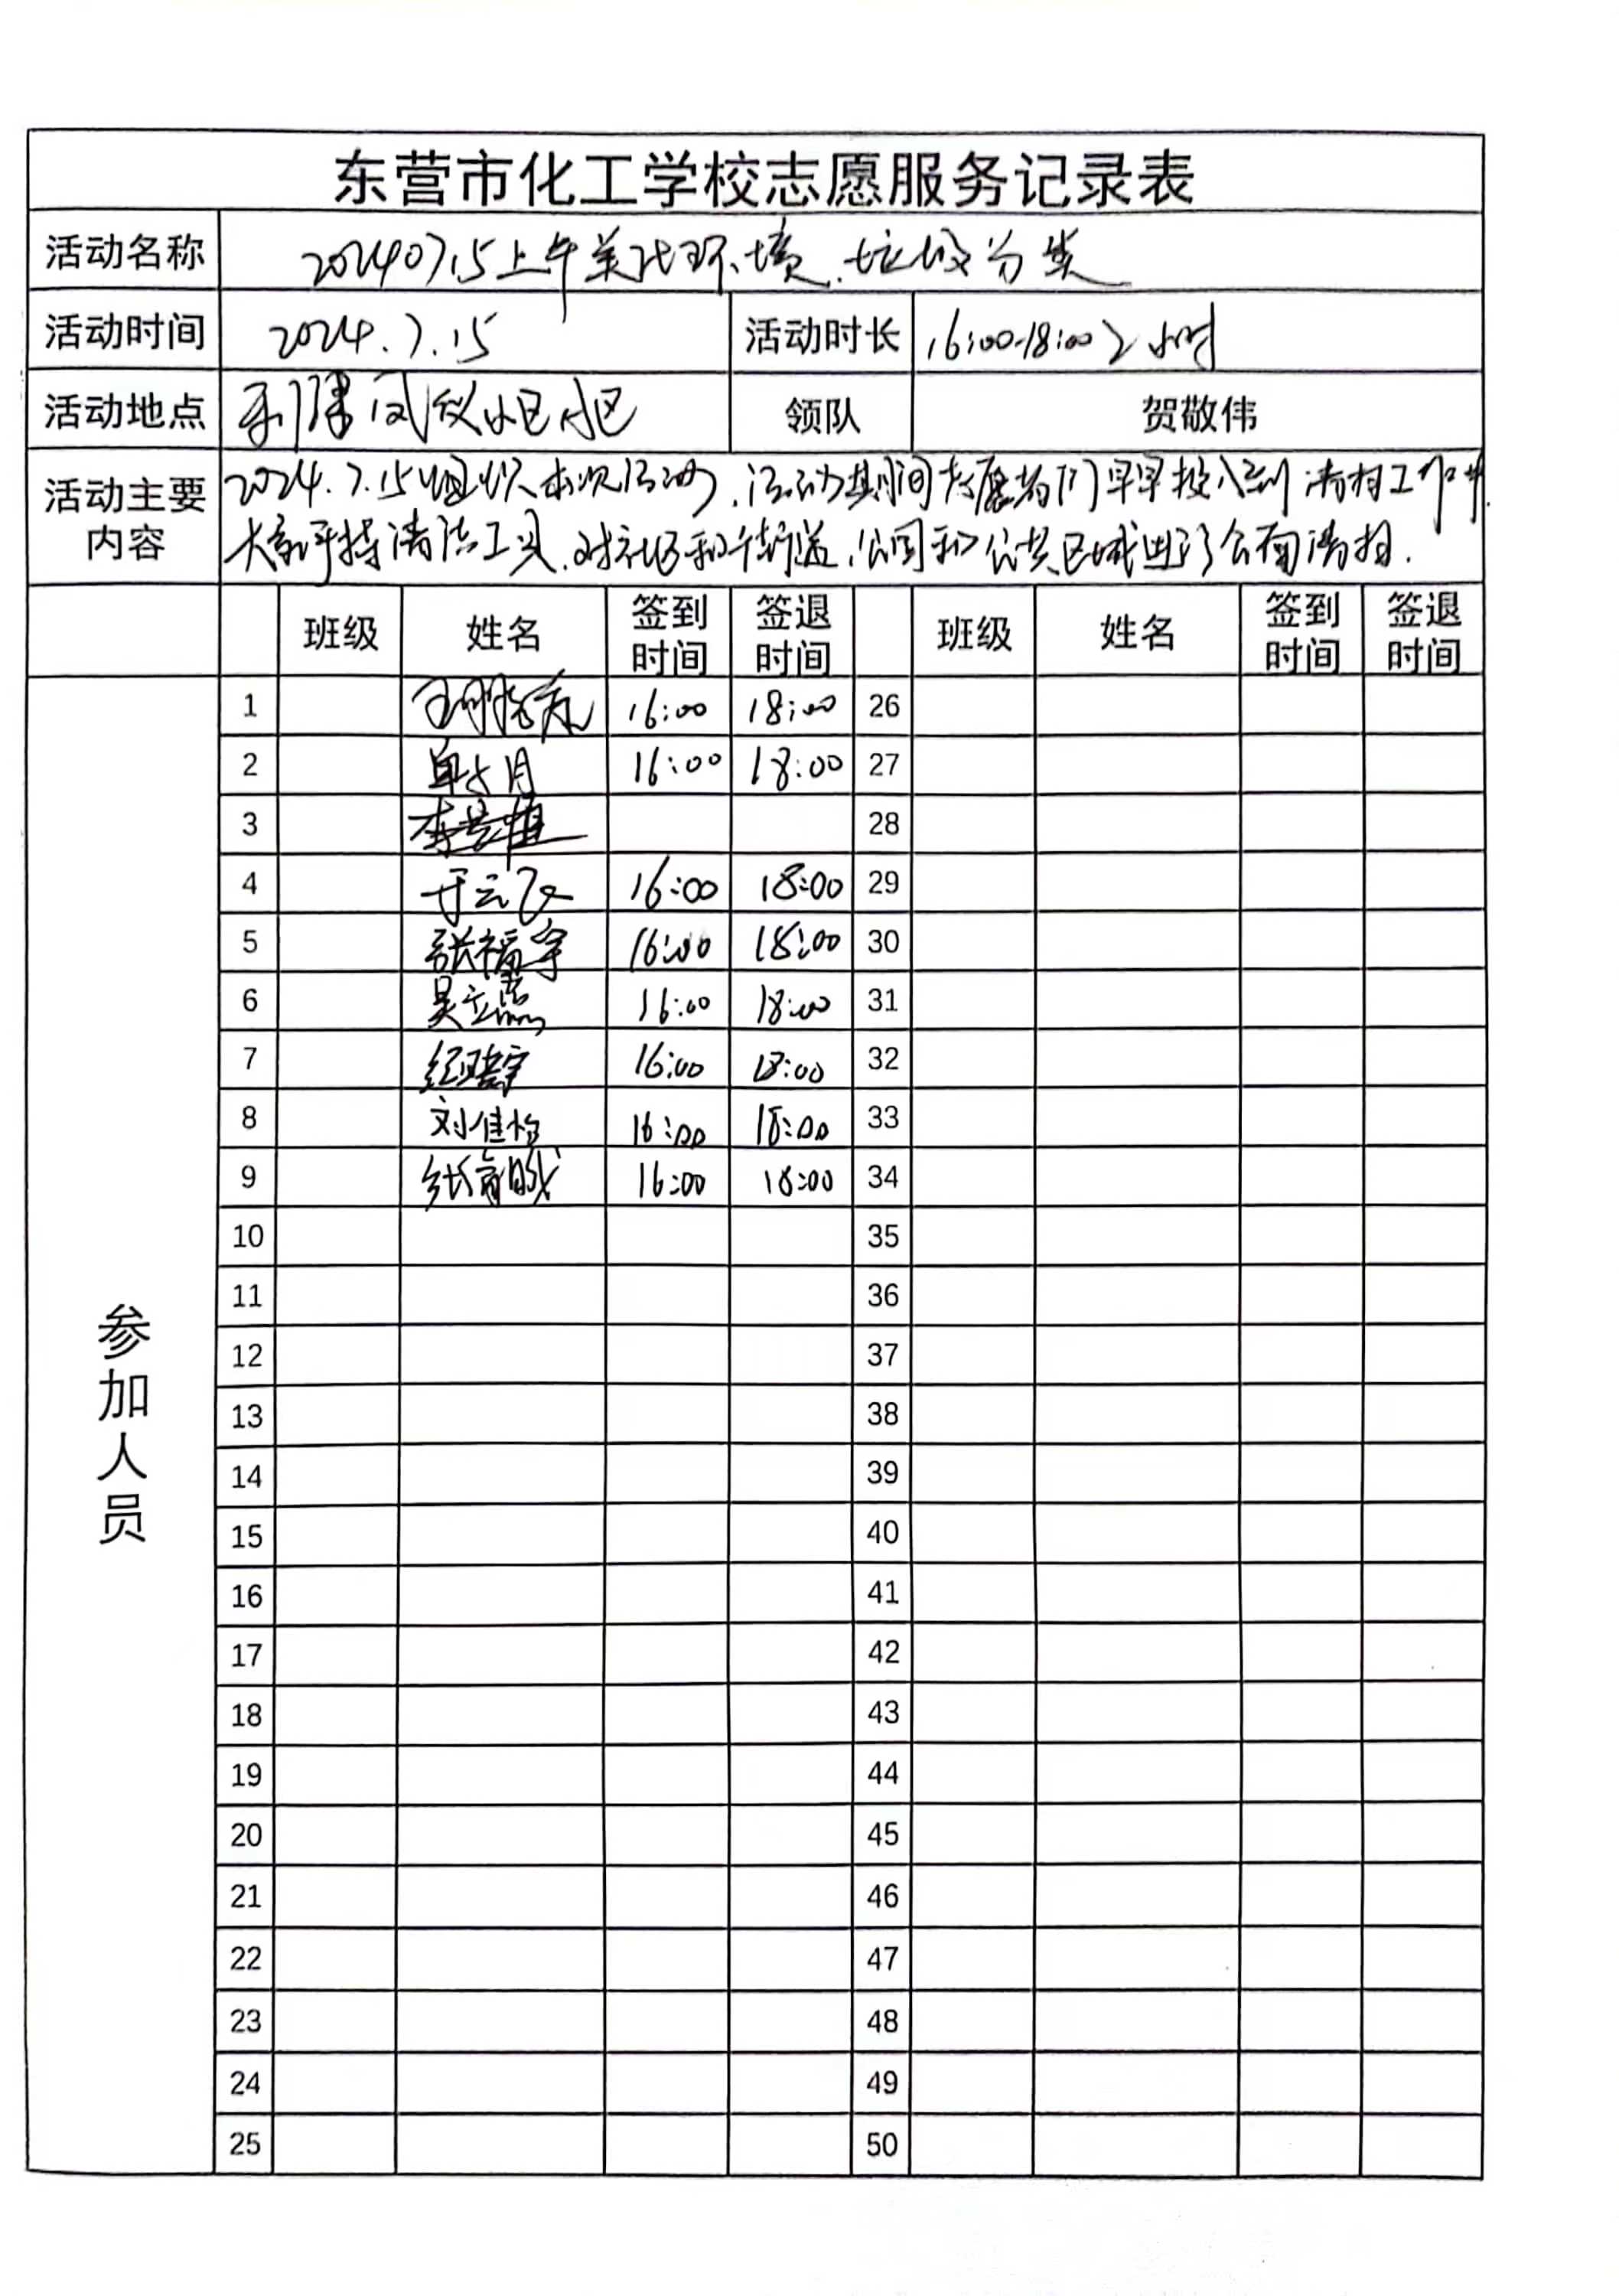 东营市化工学校志愿服务记录表
活动名称 20240715上午美化环境.垃圾分类
活动时间 2024.7.15 活动时长 16:00-18:00 2小时
活动地点 利津凤仪小区 领队 贺敬伟
活动主要内容 2024.7.15组织本次活动,活动期间志愿者们早早投入到清扫工作中.
大家手持清洁工具.对社区和街道,公园和公共区域进行了全面清扫.
班级 姓名 签到时间 签退时间 班级 姓名 签到时间 签退时间
参加人员
1 16:00 18:00 26
2 16:00 18:00 27
3 28
4 于云飞 16:00 18:00 29
5 张福宇 16:00 18:00 30
6 16:00 18:00 31
7 16:00 18:00 32
8 刘佳怡 16:00 18:00 33
9 16:00 18:00 34
10 35
11 36
12 37
13 38
14 39
15 40
16 41
17 42
18 43
19 44
20 45
21 46
22 47
23 48
24 49
25 50